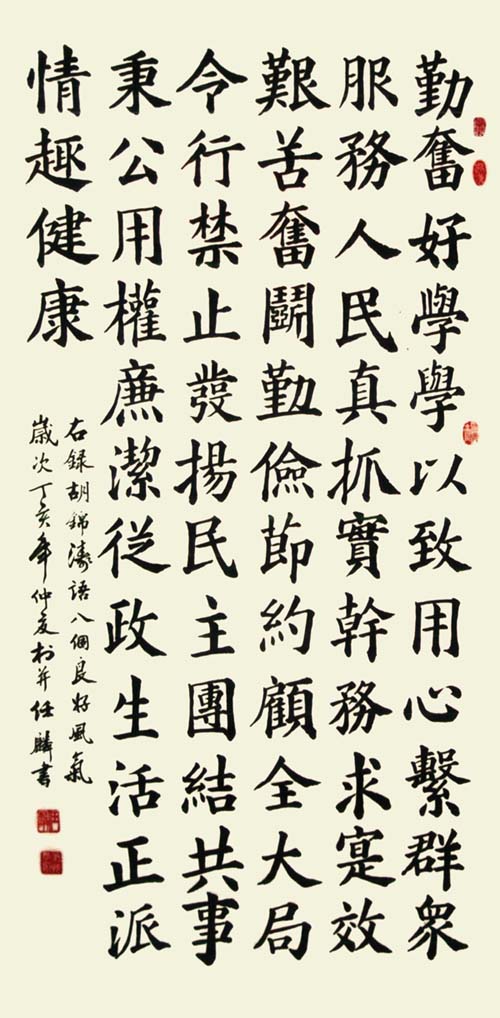 勤奮好學學以致用心繫群眾
服務人民真抓實幹務求寔效
艱苦奮鬭勤儉節約顧全大局
令行禁止發揚民主團結共事
秉公用權廉潔從政生活正派
情趣健康
右録胡錦濤語八個良好風氣
歲次丁亥年仲夏於并任麟書